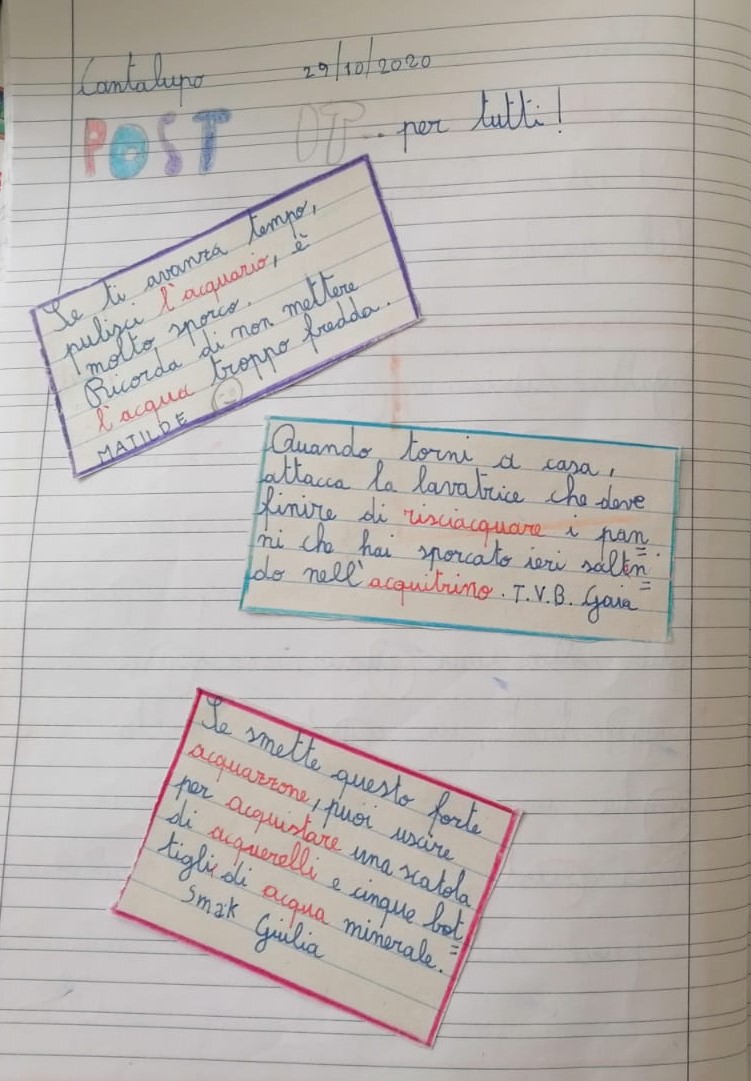 Cantalupo 29/10/2020
POST IT... per tutti!
Se ti avanza tempo,
pulisci l'acquario, è
molto sporco.
Ricorda di non mettere
l'acqua troppo fredda.
MATILDE
Quando torni a casa,
attacca la lavatrice che deve
finire di risciacquare i pan=
ni che hai sporcato ieri saltan=
do nell'acquitrino. T.V.B. Gaia
Se smette questo forte
acquazzone, puoi uscire
per acquistare una scatola
di acquerelli e cinque bot=
tiglie di acqua minerale.
Smak
Giulia